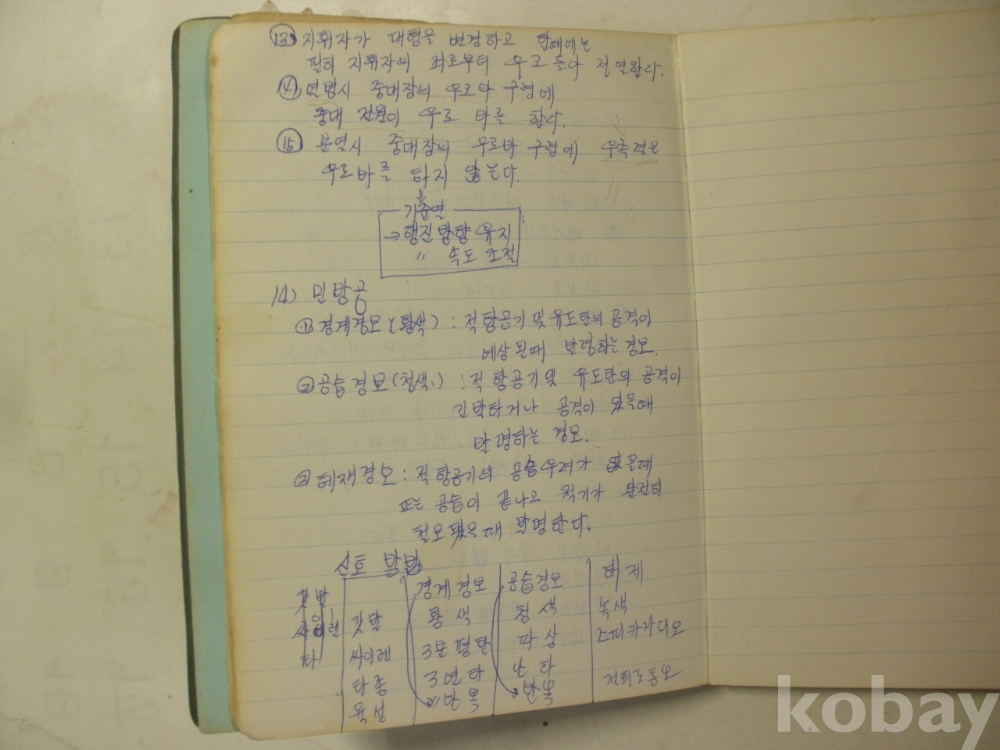 ⑬ 지휘자가 대형을 변경하고 할때에는
필히 지휘자의 좌로부터 우로 돌아 정열한다.
⑭ 연병시 중대장의 우로봐 구령에
중대 전원이 우로 봐를 한다.
⑮ 분열시 중대장의 우로봐 구령에 우측열은
우로봐를 하지 않는다.
기준열
→행진방향 유지
〃 속도 조절
14) 민방공
① 경계경보(황색) : 적항공기 및 유도탄의 공격이
예상될때 발령하는 경보.
② 공습경보(청색) : 적 항공기 및 유도탄의 공격이
긴박하거나 공격이 있을때
발령하는 경보.
③ 해제경보 : 적항공기의 공습우려가 없을때
또는 공습이 끝나고 적기가 완전히
발령한다.
신호 방법
경계경보 공습경보 해제
깃발 황색 청색 녹색
싸이렌 3분평탄 파상 스피카라디오
타종 3연타 난타
육성 반복 반복
깃발
싸이렌
타